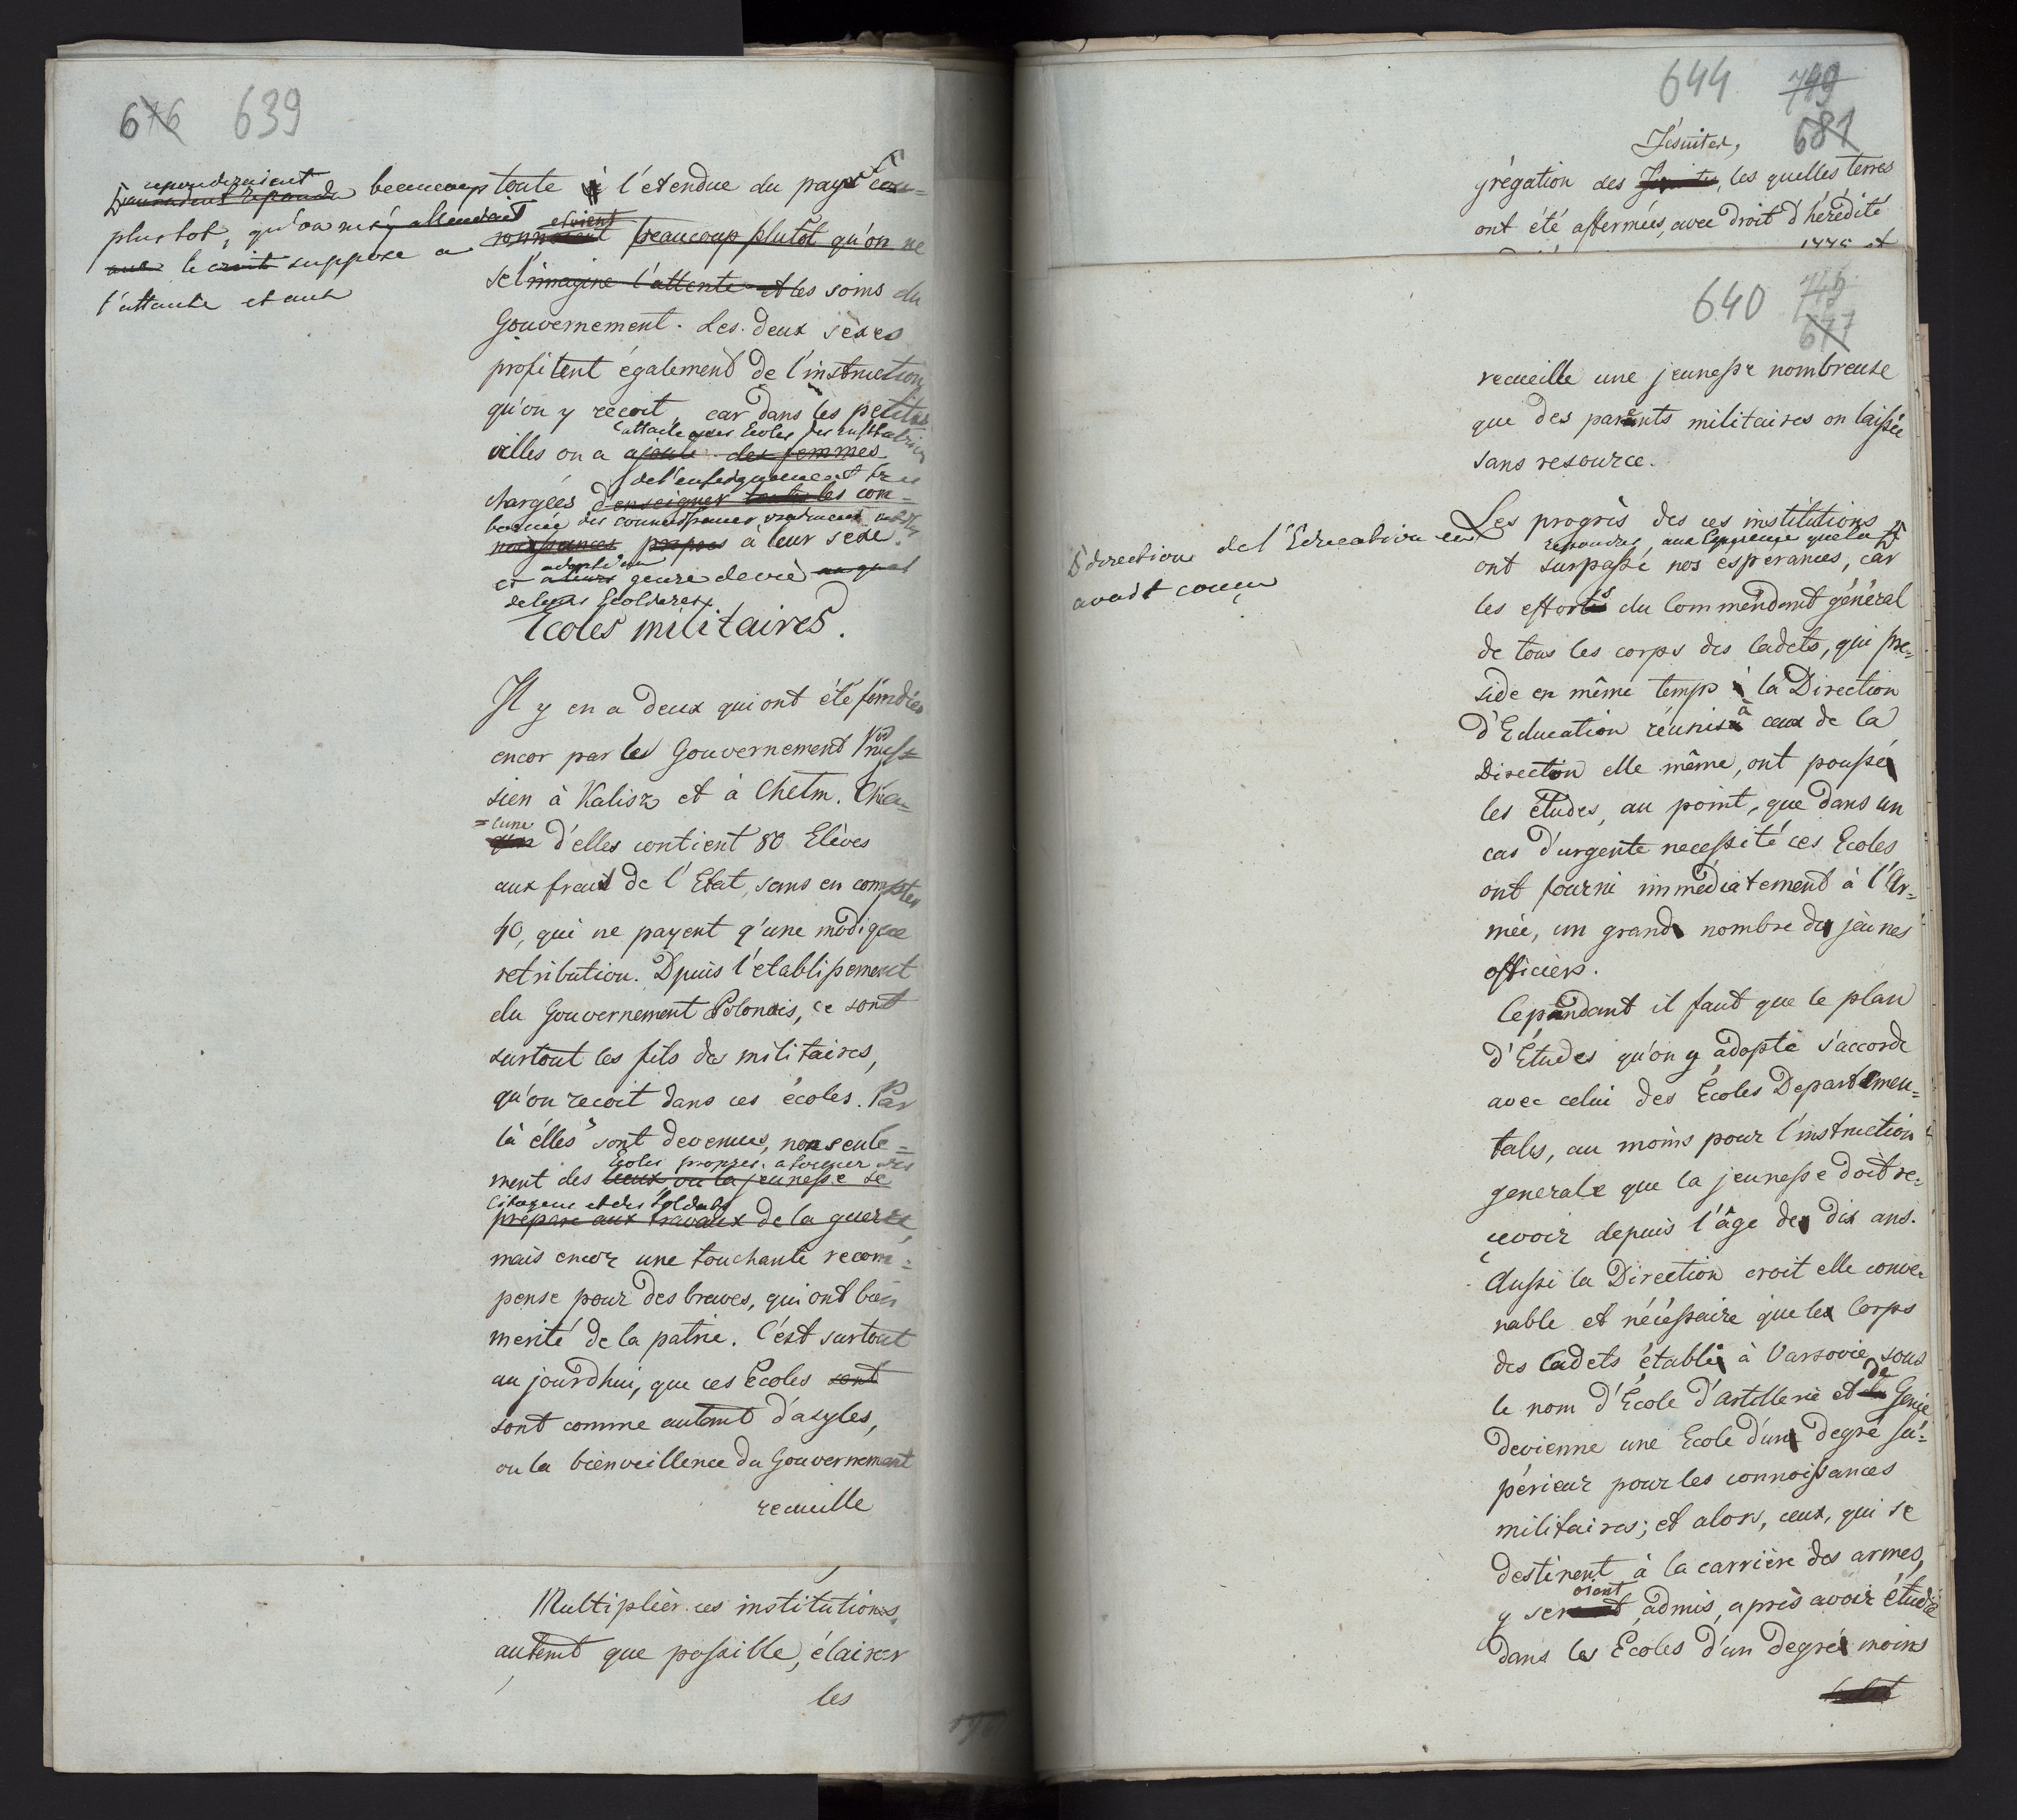 676 639
repondraient
auraient repondu beaucoup
plustot, qu'on ne s'y attendait
le croit suppose a
l'attente et aux
toute à l'etendue du pays
étoient beaucoup plutôt qu'on ne
se l'imagine l'attente et les soins du
Gouvernement. Les deux sexes
profitent également de l'instruction
qu'on y recoit, car dans les petites
attaché aux Ecoles des
villes on a ajouté des femmes
de l'enseignement
chargées d'enseigner toutes les con=
des connaissances vraiment
noissances propres à leur sexe.
et genre de vie auquel
de leurs Ecolieres
Ecoles militaires.
Il y en a deux qui ont été fondées
encor par les Gouvernement Prus=
sien à Kalisz et à Chelm. Cha=
=cune
d'elles contient 80 Elèves
aux frais de l'Etat, sans en compter
40, qui ne payent q'une modique
retribution. Dpuis l'etablissement
du Gouvernement Polonais, ce sont
surtout les fils des militaires,
qu'on recoit dans ces écoles. Par
là elles sont devenues, non seule=
Ecoles propres a former des
ment des lieux, ou la jeunesse se
Citoyens et des Soldats
prépare aux travaux de la guerre,
mais encor une touchante recom=
pense pour des braves, qui ont bien
merité de la patrie. C'est surtout
au jourd'hui, que ces Ecoles sont
sont comme autant d'asyles,
ou la bienveillence du Gouvernement
recueille
Multiplièr ces institutions
autent que possible, élairer
les
644 749
681
Jésuites,
grégation des Jesuites, les quelles terres
ont été affermées, avec droit d'hérédité
640 745
677
recueille une jeunesse nombreuse
que des parents militaires on laissée
sans resource.
direction de l'Education en
avait conçu
Les progrès des ces institutions
ont surpassé nos esperances, car
les efforts du Commendant général
de tous les corps des Cadets, qui pre=
side en même temp à la Direction
d'Education réunis à ceux de la
Direction elle même, ont poussé
les études, au point, que dans un
cas d'urgente necessité ces Ecoles
ont fourni immédiatement à l'Ar=
mée, un grand nombre de jeunes
officiers.
Cependant il faut que le plan
d'Études qu'on y adopte s'accorde
avec celui des Écoles Departemen=
tales, au moins pour l'instruction
generale que la jeunesse doit re=
çevoir depuis l'âge de dix ans.
Aussi la Direction croit elle conve=
nable et nécéssaire que les Corps
des Cadets établi à Varsovie sous
de
le nom d'École d'artillerie et du Genie
devienne une Ecole d'un degré su=
périeur pour les connoissances
militaires; et alors, ceux, qui se
destinent à la carrière des armes,
oient
y seront admis, après avoir étudié
dans les Ecoles d'un degré moins